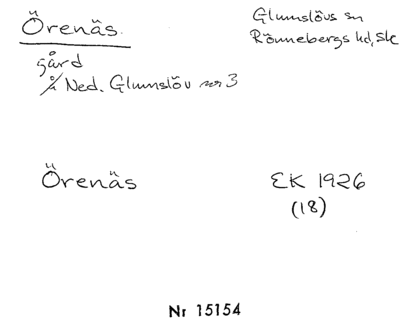 Örenäs.
Glumslövs sn
Rönnebergs hd, Sk
gård
å/ Ned. Glumslöv nr 3
Örenäs
EK 1926
(18)
Nr 15154